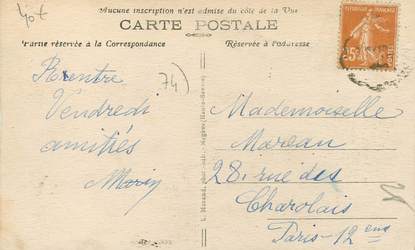 40€
Aucune inscription n'est admise du côté de la Vue
CARTE POSTALE
Partie réservée à la Correspondance
Réservée à l'adresse
Rentre
Vendredi
amitiés
74)
Mademoiselle
Mareau
28 rue des
Charolais
Paris-12 ens